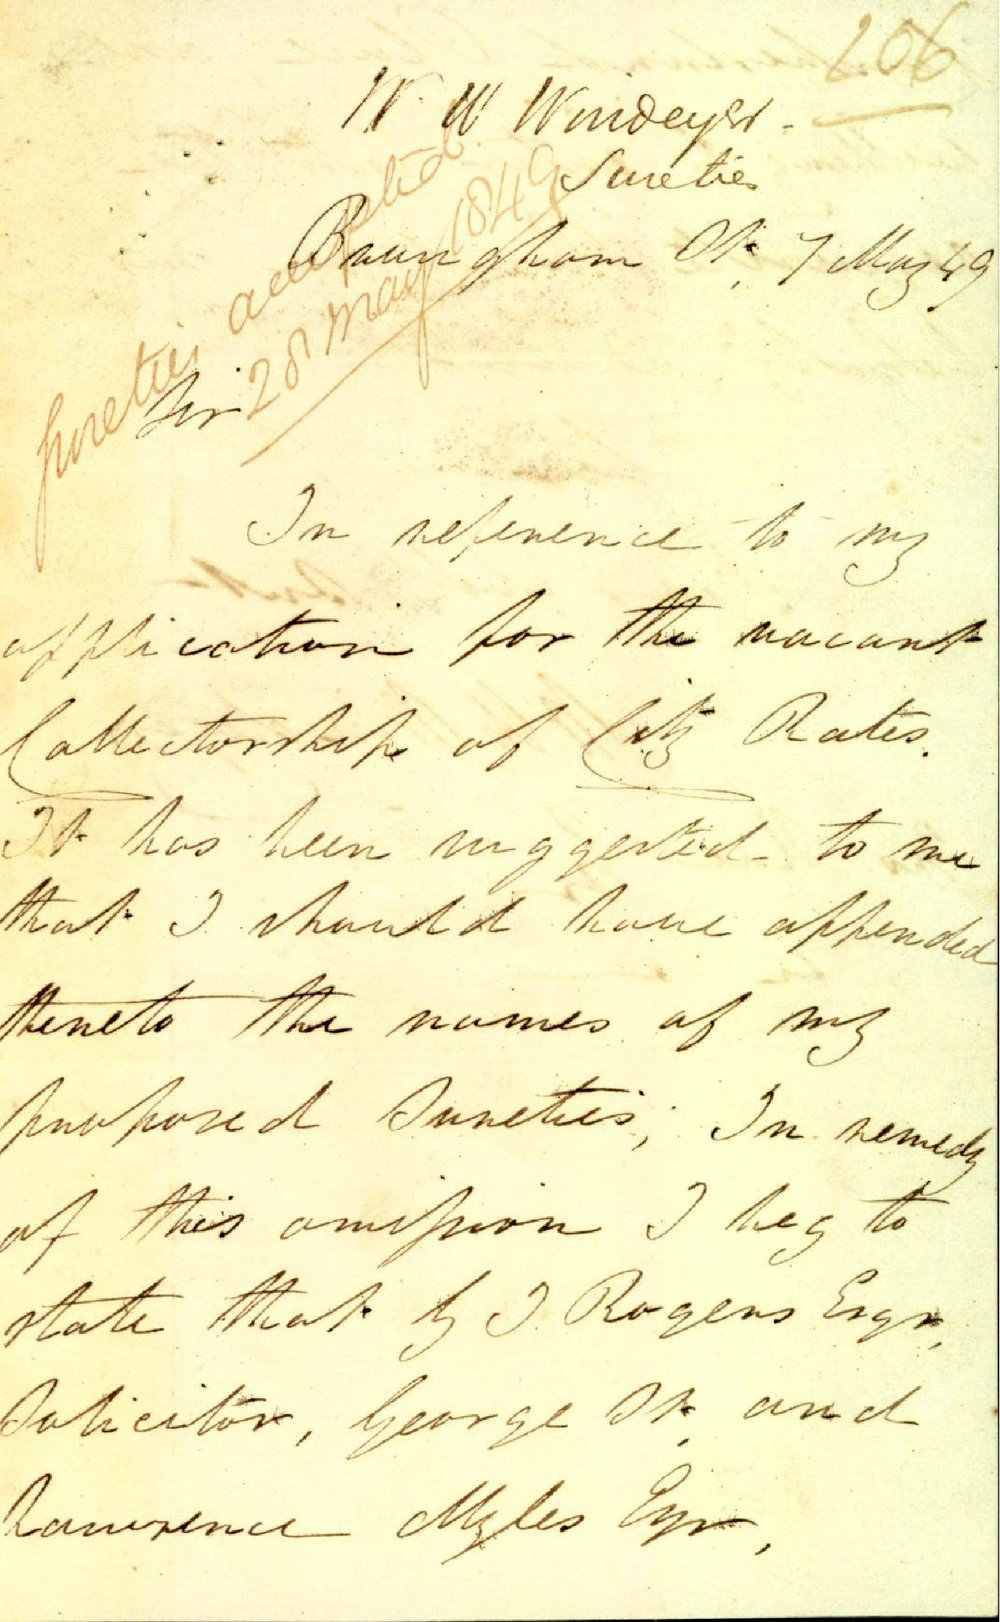 206
W W Windeyer.
Sureties
Buckingham St. 7 May 49
sureties accepted.
28 May 1849
Sir
In reference to my
application for the vacant
Collectorship of City Rates.
It has been suggested to me
that I should have appended
thereto the names of my
proposed Sureties; In remedy
of this omission I beg to
state that G J Rogers Esqr,
Solicitor, George St. and
Lawrence Myles Esqr,